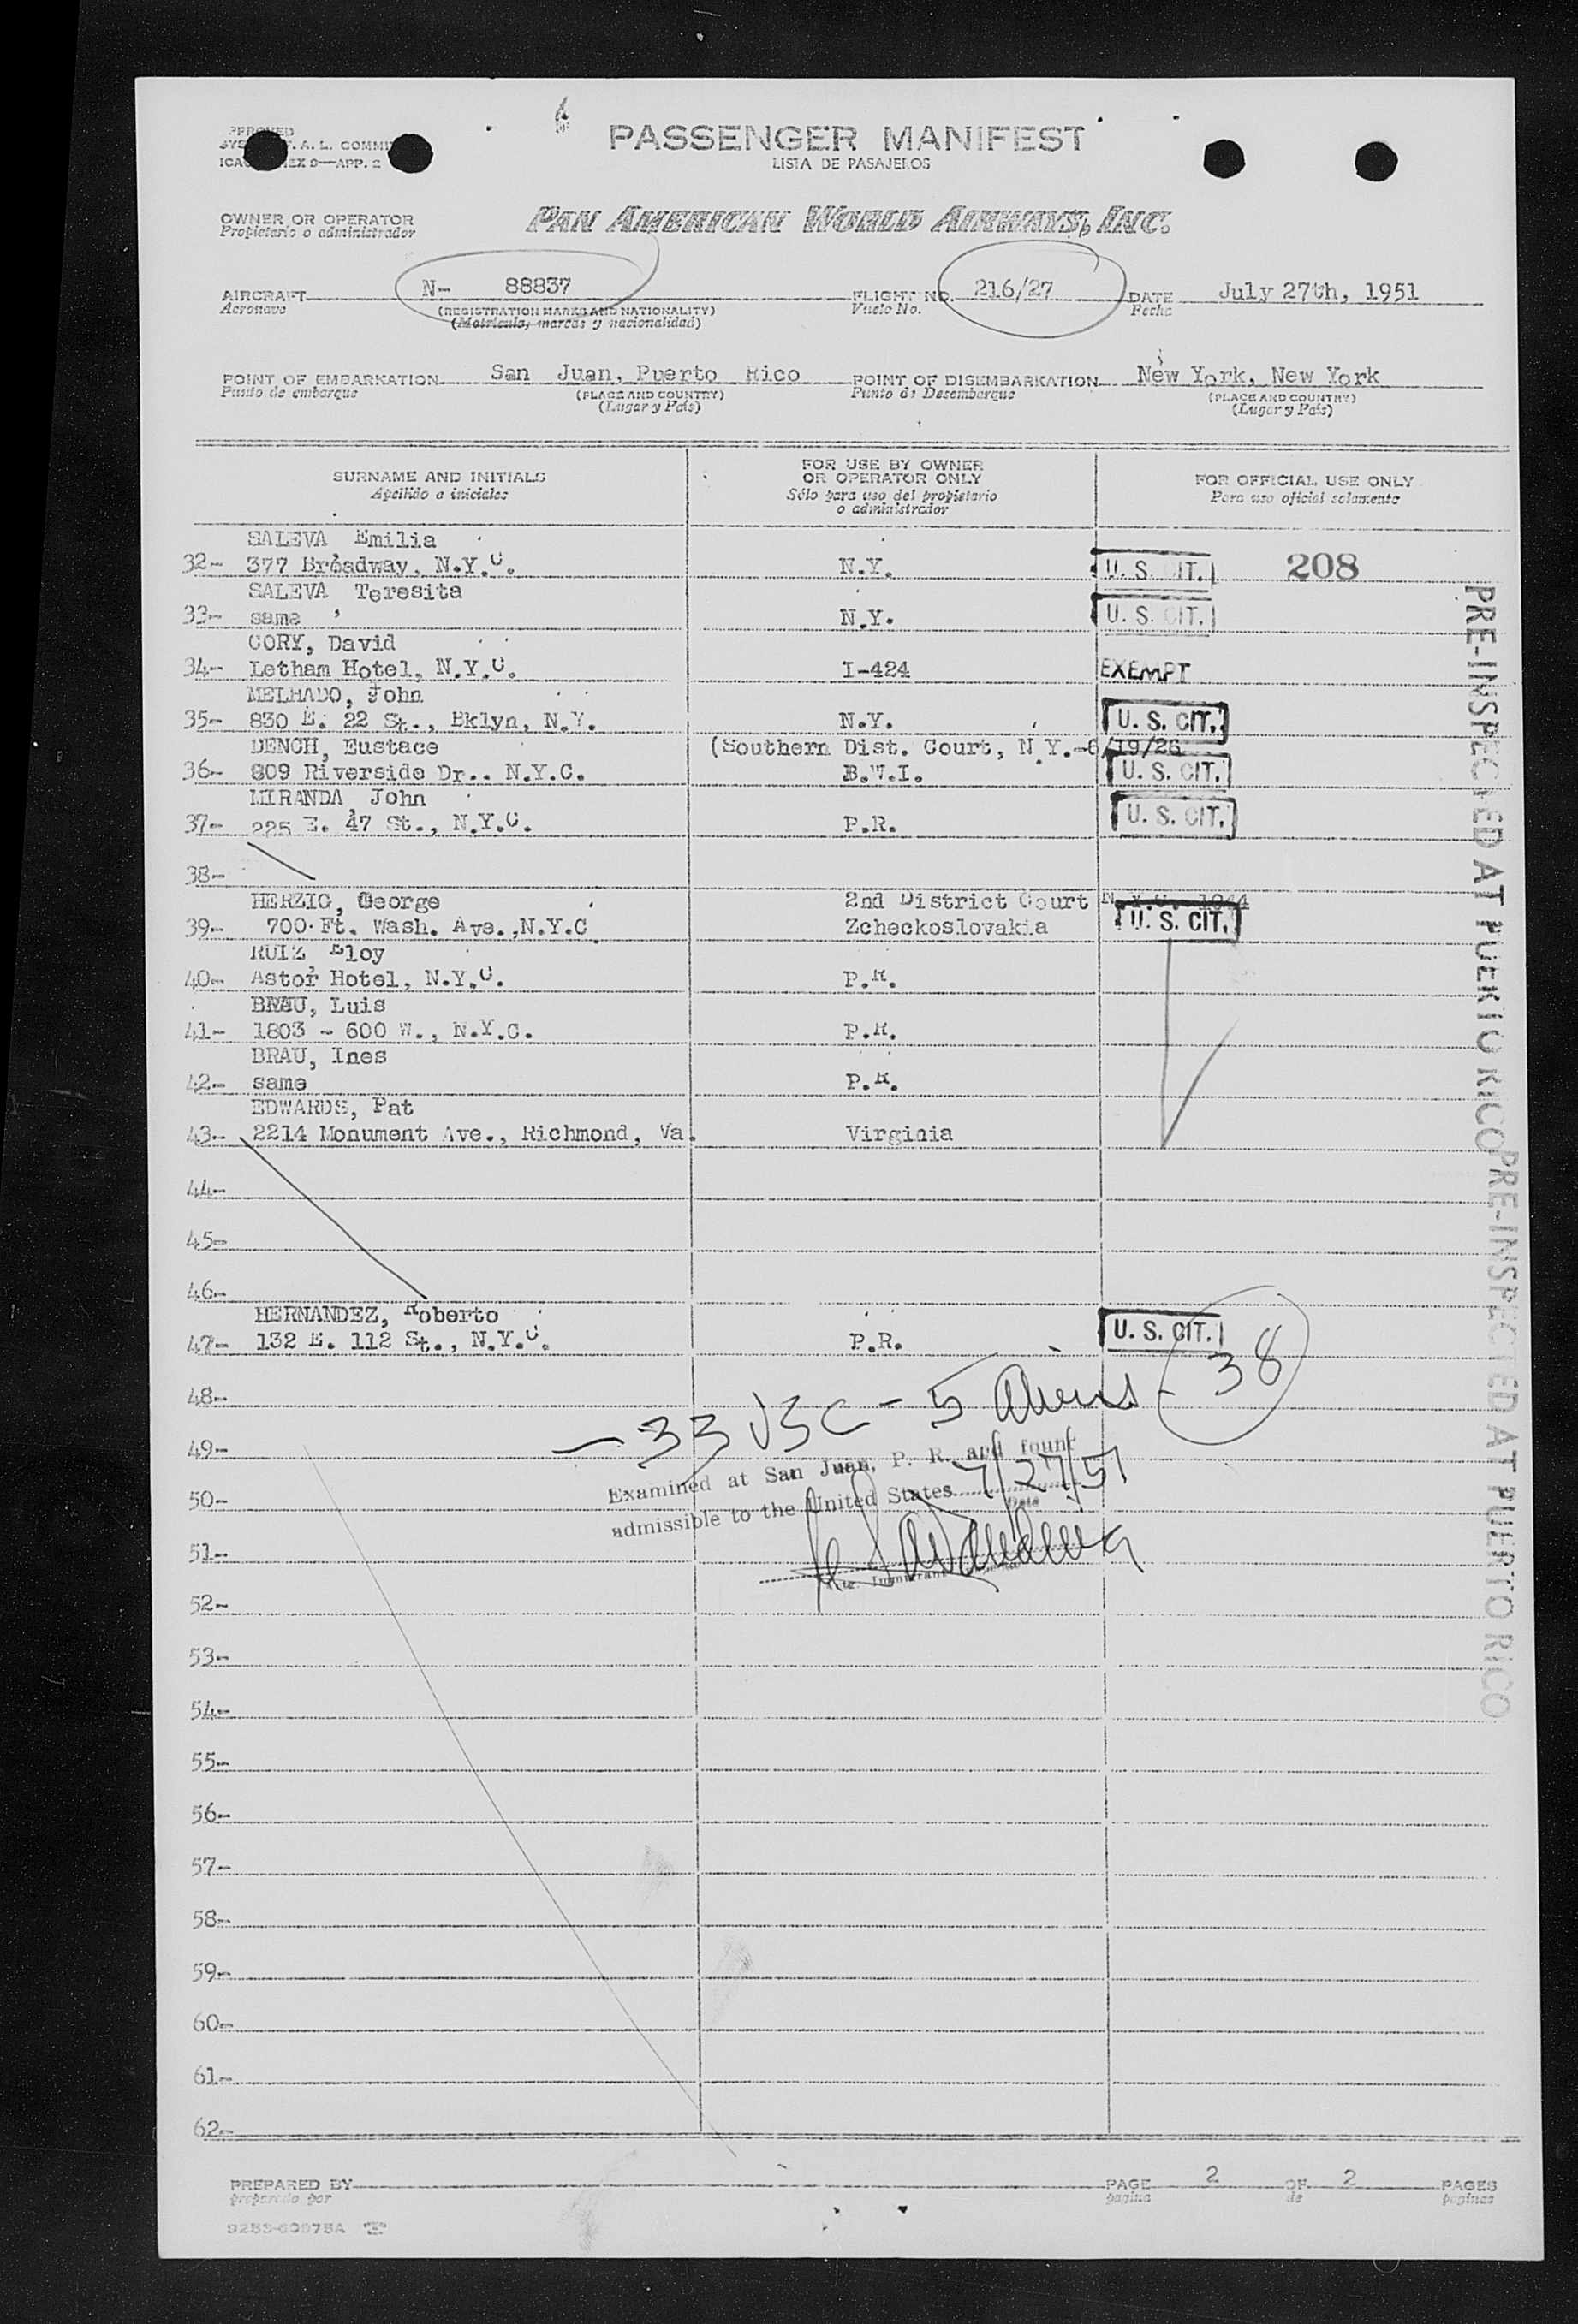 PASSENGER MANIFEST
LISTA DE PASAJEROS
A. L.
ICAO EX 9—APP. 2
OWNER OR OPERATOR
Propietario o administrador
PAN AMERICAN WORLD AIRWAYS, INC.
AIRCRAFT N- 88837 FLIGHT NO. 216/27 DATE July 27th, 1951
Aeronave (REGISTRATION MARKS AND NATIONALITY) Vuelo No. Fecha
(Matricula, marcas y nacionalidad)
POINT OF EMBARKATION San Juan, Puerto Rico POINT OF DISEMBARKATION New York, New York
Punto de embarque (PLACE AND COUNTRY) Punto de Desembarque (PLACE AND COUNTRY)
(Lugar y País) (Lugar y País)
SURNAME AND INITIALS
Apellido e iniciales
FOR USE BY OWNER
OR OPERATOR ONLY
Sólo para uso del propietario
o administrador
FOR OFFICIAL USE ONLY
Para uso oficial solamente
SALEVA, Emilia
32- 377 Broadway, N.Y.C. N.Y. U. S. CIT. 208
SALEVA, Teresita
33- same N.Y. U. S. CIT.
CORY, David
34- Letham Hotel, N.Y.C. I-424 EXEMPT
MELHADO, John
35- 830 E. 22 St., Bklyn, N.Y. N.Y. U. S. CIT.
DENCH, Eustace (Southern Dist. Court, N.Y.-6/19/26
36- 809 Riverside Dr.. N.Y.C. B.W.I. U. S. CIT.
MIRANDA, John
37- 225 E. 47 St., N.Y.C. P.R. U. S. CIT.
38-
HERZIG, George 2nd District Court N.Y.C. 1944
39- 700 Ft. Wash. Ave.,N.Y.C Zcheckoslovakia U. S. CIT.
RUIZ, Eloy
40- Astor Hotel, N.Y.C. P.R.
BRAU, Luis
41- 1803 - 600 W., N.Y.C. P.R.
BRAU, Ines
42- same P.R.
EDWARDS, Pat
43- 2214 Monument Ave., Richmond, Va. Virginia
44-
45-
46-
HERNANDEZ, Roberto
47- 132 E. 112 St., N.Y.C. P.R. U. S. CIT.
48- 33 USC - 5 Aliens - 38
49-
Examined at San Juan, P. R. and found
50-
admissible to the United States 7/27/51
Date
51-
52-
53-
54-
55-
56-
57-
58-
59-
60-
61-
62-
PRE-INSPECTED AT PUERTO RICO
PRE-INSPECTED AT PUERTO RICO
PREPARED BY PAGE 2 OF 2 PAGES
preparado por pagina de paginas